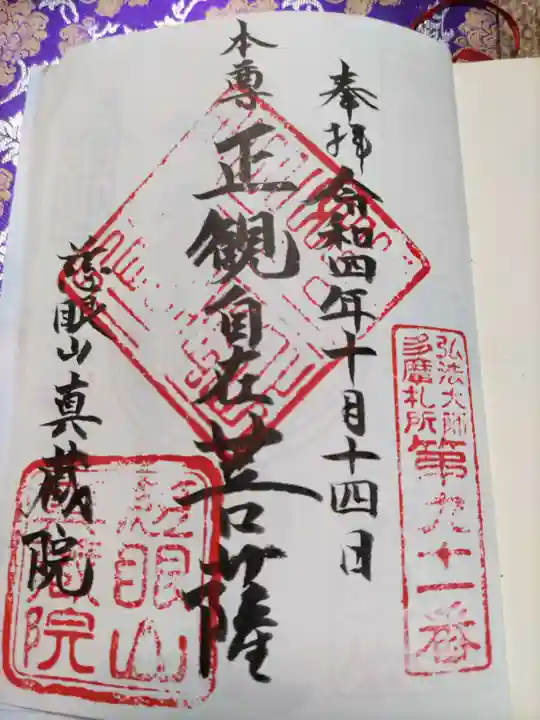 奉拝 令和四年十月十四日
弘法大師
多摩札所
第九十一番
本尊
正観自在菩薩
慈眼山真蔵院
慈眼山
真蔵院